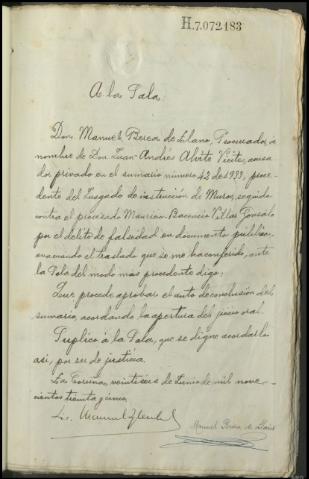 H.7.072.183
A la Sala:
Don Manuel Berea de Llano, Procurador, a
nombre de Don Juan Andrés Alvite Vieites, acusa
dor privado en el sumario número 42 de 1933, proce
dente del Juzgado de instrucción de Muros, seguido
contra el procesado Mauricio
por el delito de falsedad en documento público,
evacuando el traslado que se me ha conferido, ante
la Sala del modo mas procedente digo:
Que procede aprobar el auto de conclusión del
sumario, acordando la apertura del juicio oral.
Suplico á la Sala, que se digne acordarlo
asi, por ser de justicia.
La Coruña, de Junio de mil nove
cientos treinta y cinco.
Lic. Manuel
Manuel Berea de Llano